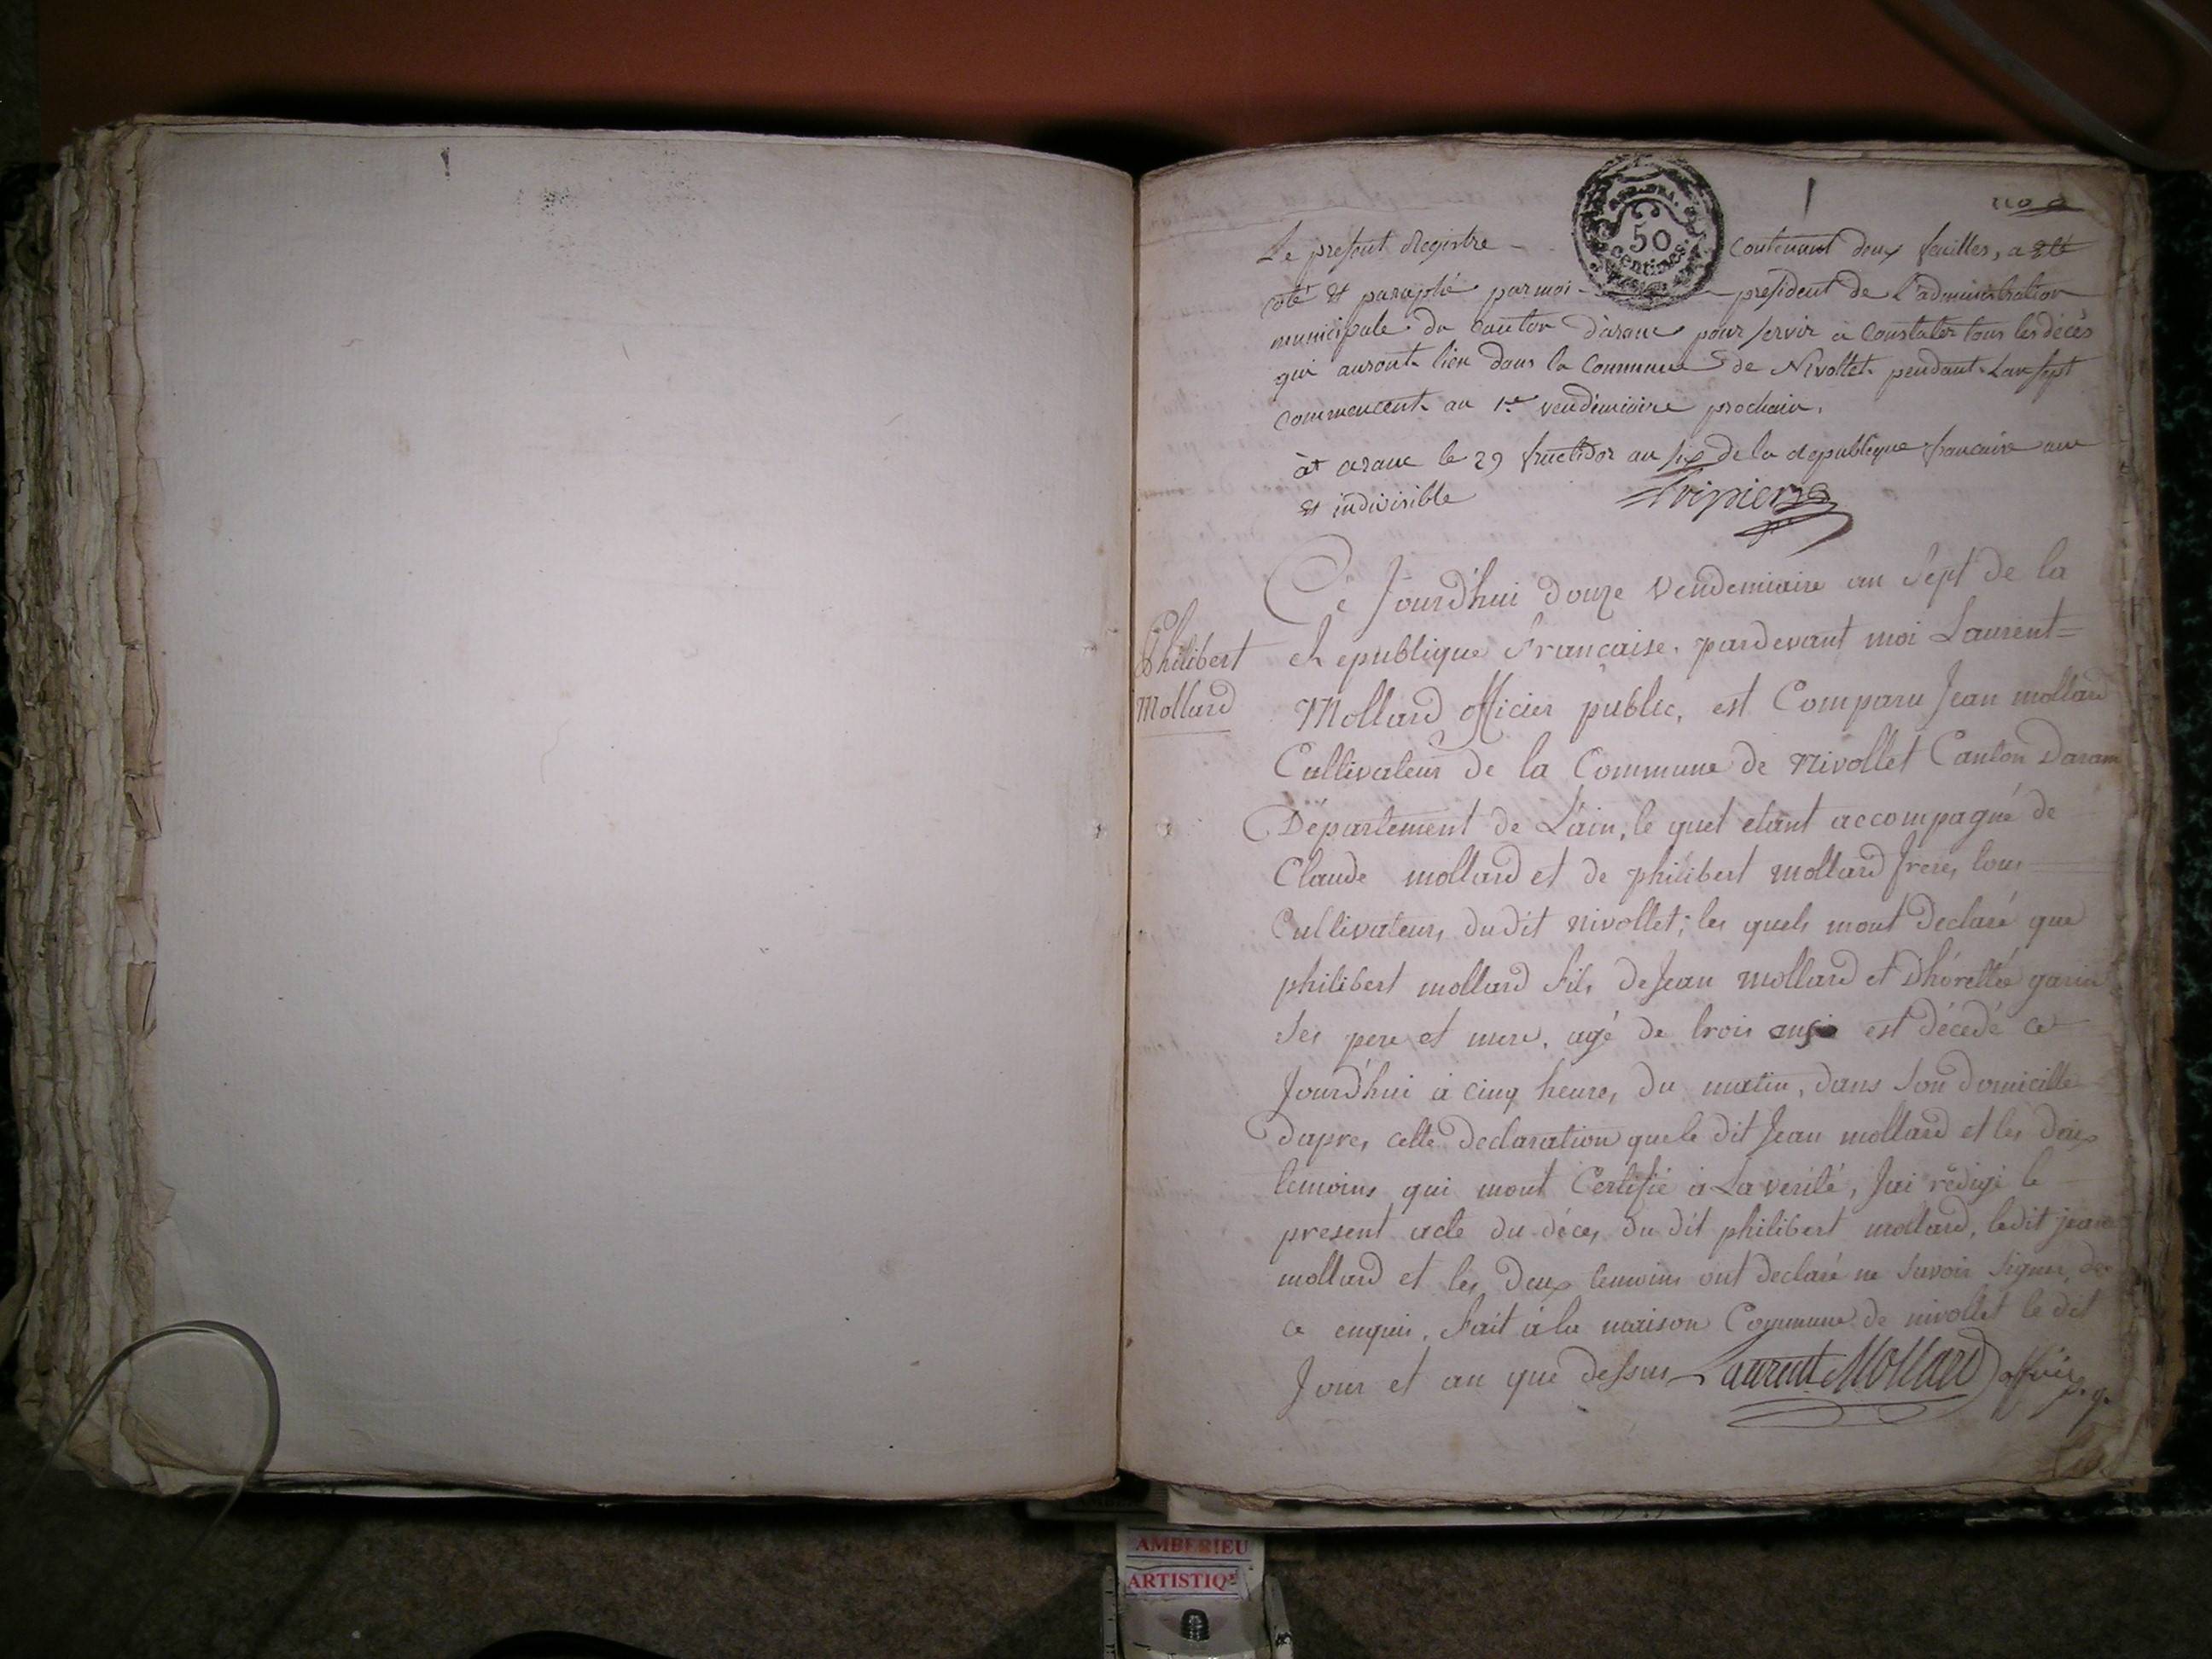 Le present Registre - contenant deux feuilles, a été
coté et paraphé par moi - president de l'administration
municipale du canton d'aranc pour servir a constater tous les décès
qui auront lieu dans la Commune de Nivollet pendant Lan sept
commencent au 1er vendémiaire prochain.
àt aranc le 29 fructidor an six de la republique francaise une
et indivisible
50
centimes
Philibert
Mollard
Ce Jourd'hui douze Vendemiaire an Sept de la
Republique Française, pardevant moi Laurent=
Mollard officier public, est Comparu Jean mollard
Cultivateur de la Commune de Nivollet Canton Daranc
Département de L'ain, le quel etant accompagné de
Claude mollard et de philibert mollard frere, tous
Cultivateurs du dit nivollet; les quels mont Declaré que
philibert mollard fils de Jean mollard et garin
Ses pere et mere, agé de trois ans est décedé ce
Jourd'hui à cinq heures du matin, dans Son domicille
Dapres cette Declaration que le dit Jean mollard et les deux
temoins qui mont Certifié a La verité, Jai rédigé le
present acte du déces du dit philibert mollard, ledit jean
mollard et les Deux temoins ont declaré ne Savoir Signer, de
ce enquis, fait à la maison Commune de nivollet le dit
Jour et an que dessus Laurent Mollard officier
AMBERIEU
ARTISTIQ